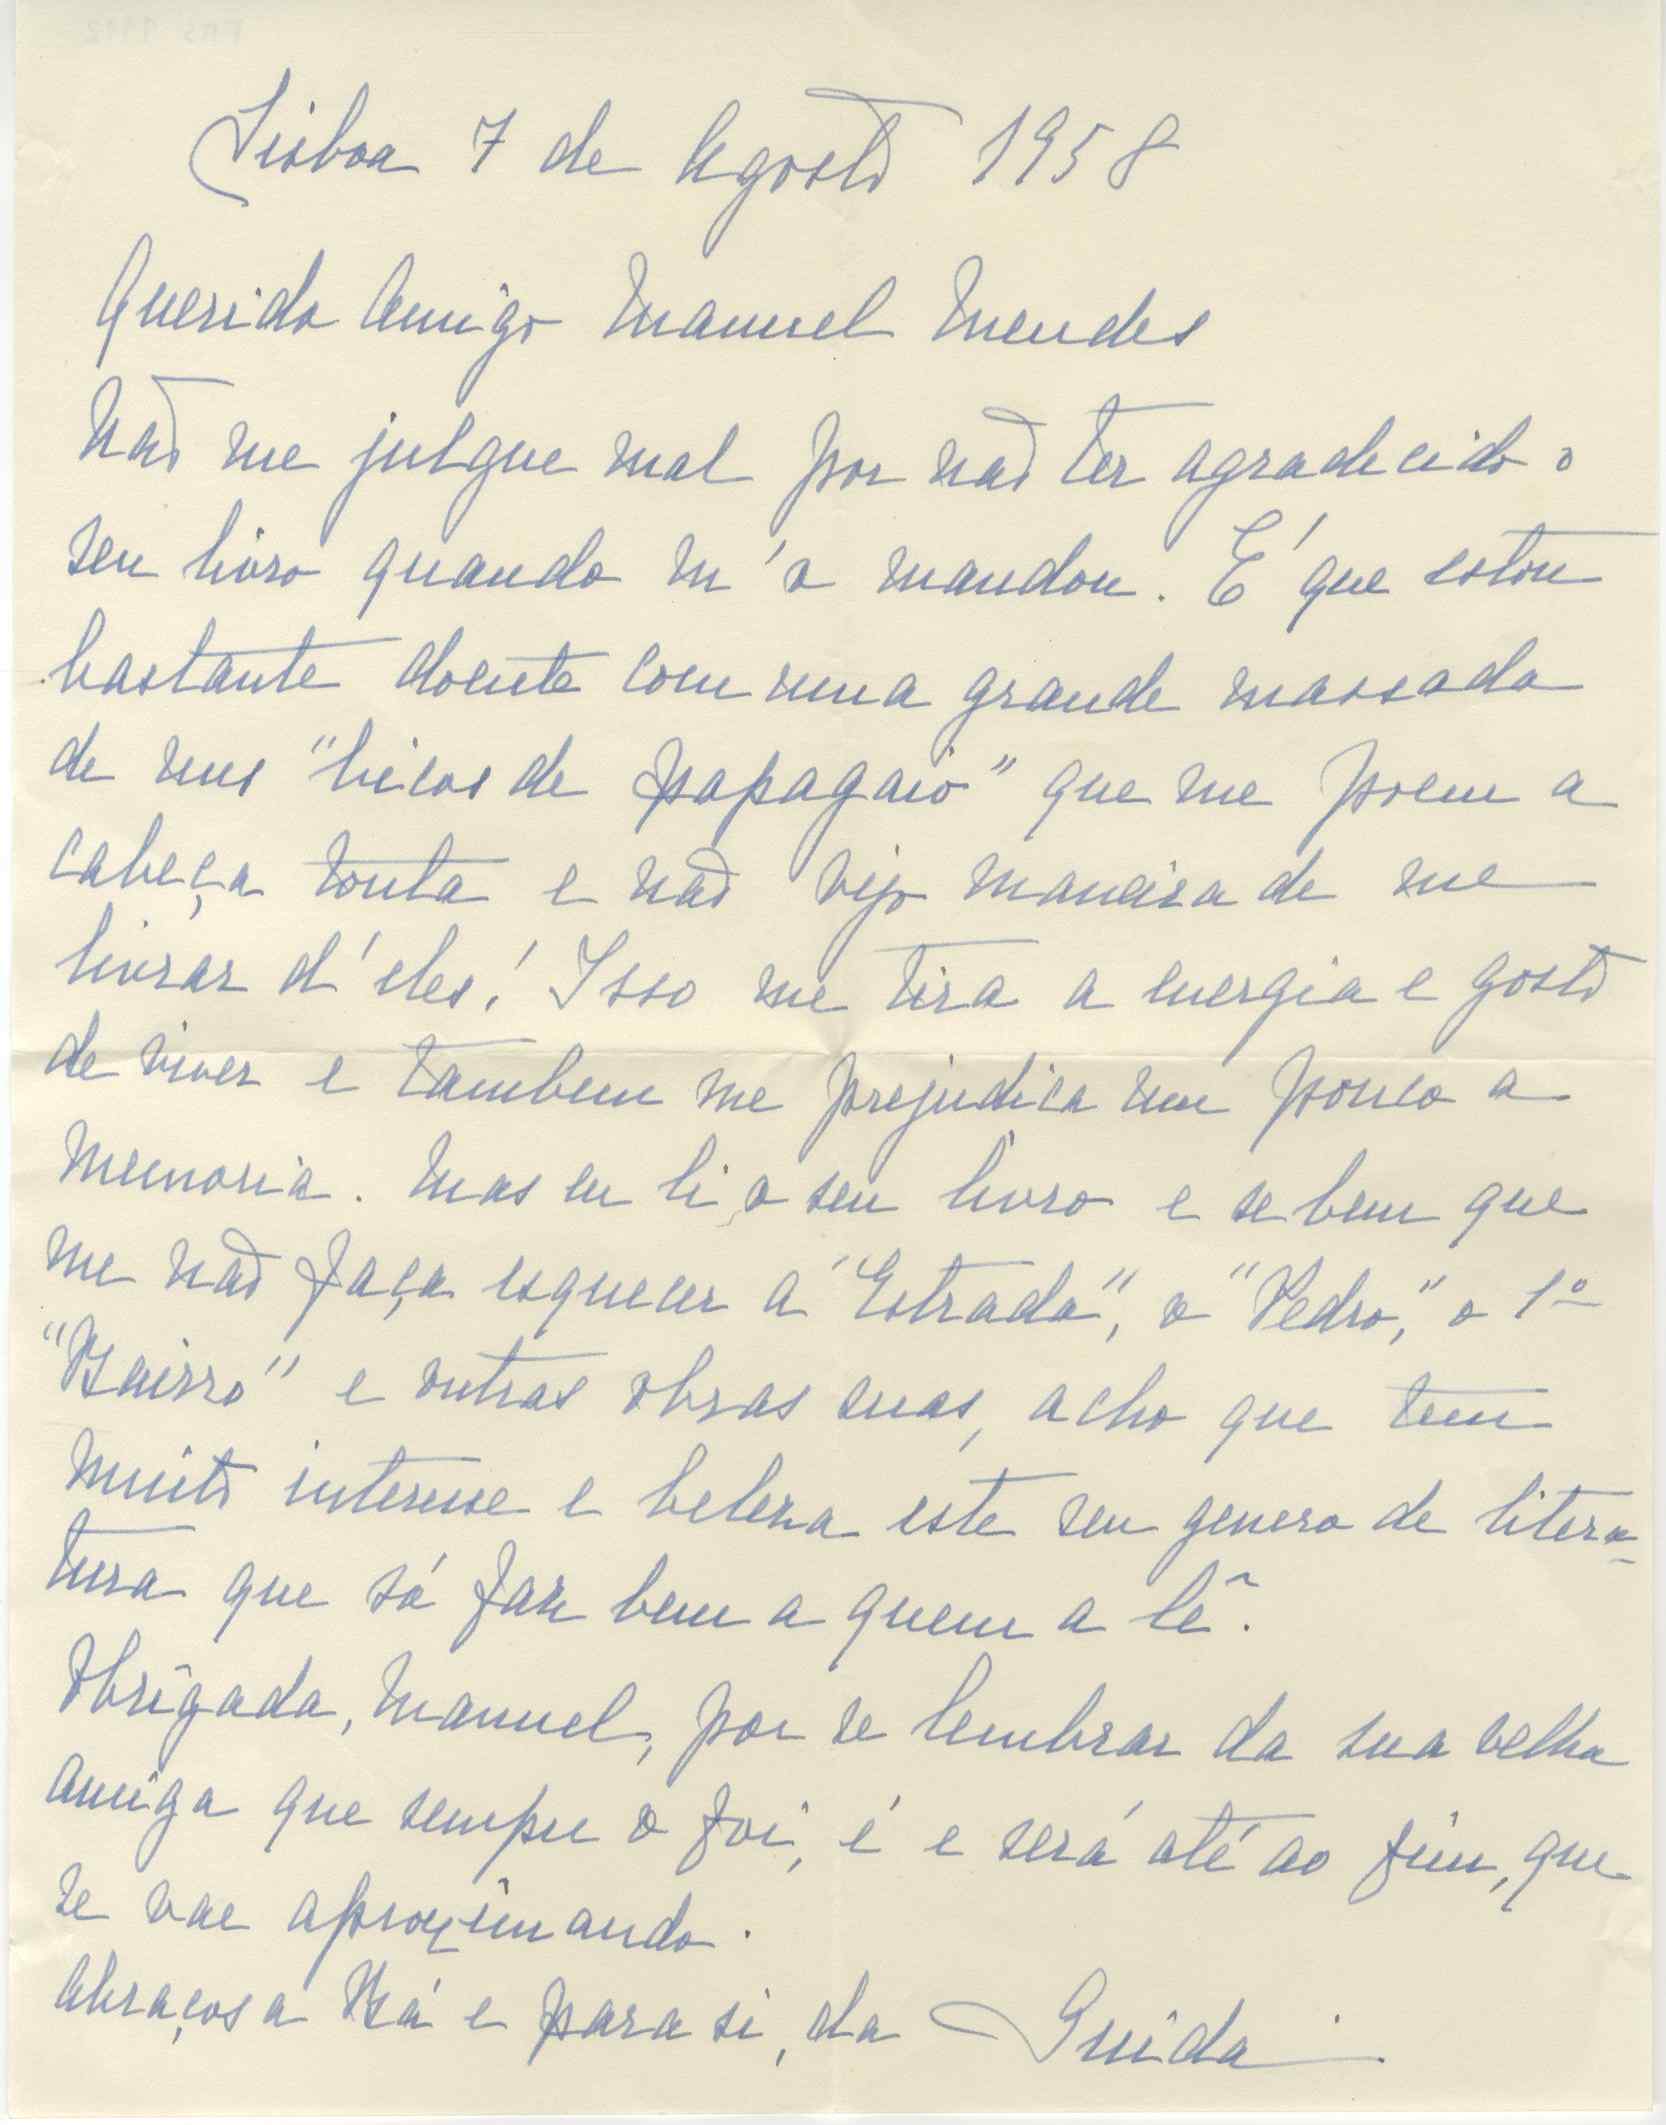 Lisboa 7 de Agosto 1958
Querido Amigo Manuel Mendes
Não me julgue mal por não ter agradecido o
seu livro quando m'o mandou. É que estou
bastante doente com uma grande massada
de uns "bicos de papagaio" que me poem a
cabeça tonta e não vejo maneira de me
livrar d'eles! Isso me tira a energia e gosto
de viver e tambem me prejudica um pouco a
memoria. Mas eu li o seu livro e se bem que
me não faça esquecer a "Estrada", o "Pedro", o 1º
"Bairro" e outras obras suas, acho que tem
muito interesse e beleza este seu genero de litera-
tura que só faz bem a quem a lê.
Obrigada, Manuel, por se lembrar da sua velha
amiga que sempre o foi, é e será até ao fim, que
se vae aproximando.
Abraços a Bá e para si, da Guida